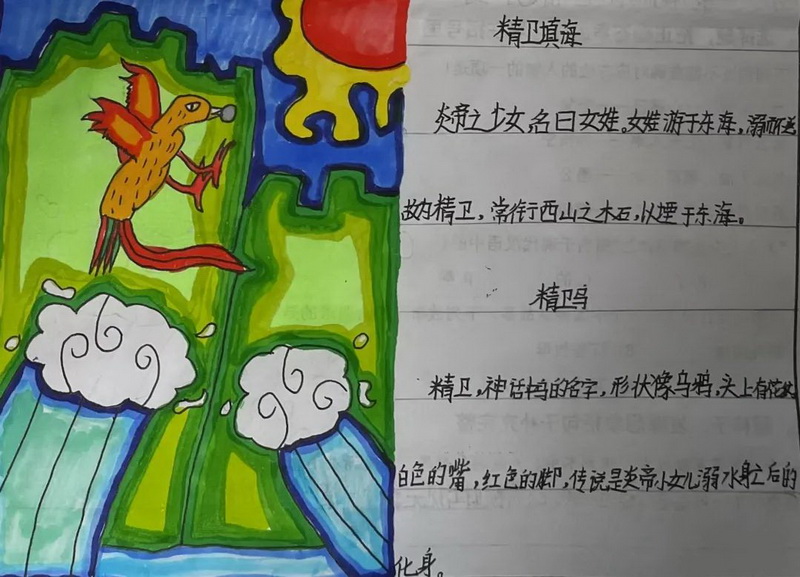 精卫填海
炎帝之少女,名曰女娃。女娃游于东海,溺而不返
故为精卫,常衔西山之木石,以堙于东海。
精卫鸟
精卫,神话中鸟的名字,形状像乌鸦,头上有花纹
白色的嘴,红色的脚,传说是炎帝小女儿溺水身亡后的
化身。